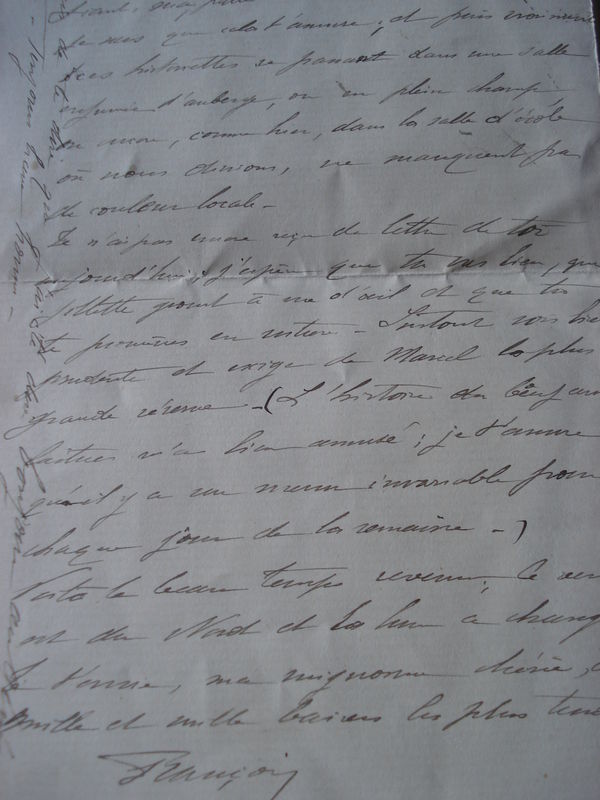 que cela t'amuse ; et puis vraiment
ces historiettes se passant dans une salle
enfumée d'auberge, ou en plein champ
ou encore, comme hier, dans la salle d'école
où nous dinions, ne manquent pas
de couleur locale -
Je n'ai pas encore reçu de lettre de toi
aujourd'hui ; j'espère que tu vas bien, que
pousse à vue d'œil et que tu
te promènes en voiture - Surtout sois bien
prudente et exige de Marcel la plus
grande réserve - (L'histoire du bœuf aux
laitues m'a bien amusé ; je t'assure
qu'il y a un menu invariable pour
chaque jour de la semaine -)
Voilà le beau temps revenu ; le ven
est du Nord et la lune a chang
Je t'envoie, ma mignonne chérie,
mille et mille baisers les plus tend
François